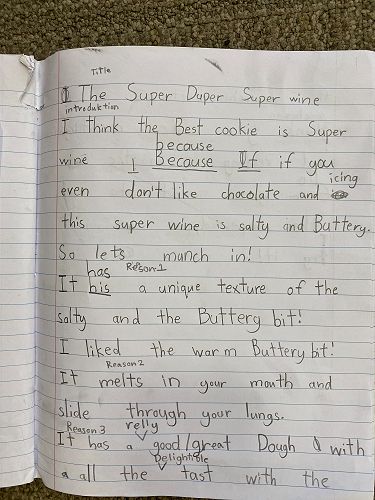 Title
The Super Duper Super wine
introduktion
I think the Best cookie is Super
because
wine I Because If if you
icing
even don't like chocolate and
this super wine is salty and Buttery.
So lets munch in!
has Reson1
It his a unique texture of the
salty and the Buttery bit!
I liked the warm Buttery bit!
Reason 2
It melts in your mouth and
slide through your lungs.
Reason 3 relly
It has a good/great Dough with
Delightible
a all the tast with the